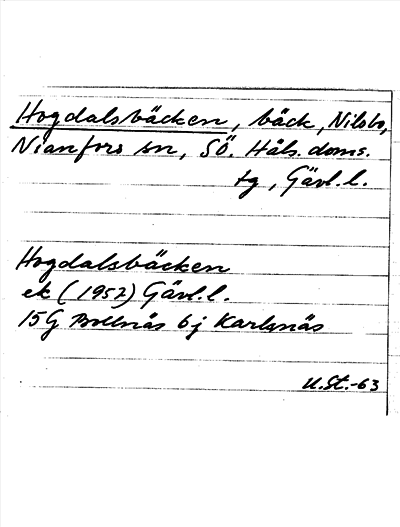 Hogdalsbäcken, bäck, Nilsbo,
Nianfors sn, SÖ. Häls. doms.
tg, Gävl. l.
Hogdalsbäcken
ek (1952) Gävl. l.
15G Bollnäs 6j Karlsnäs
U.St.-63